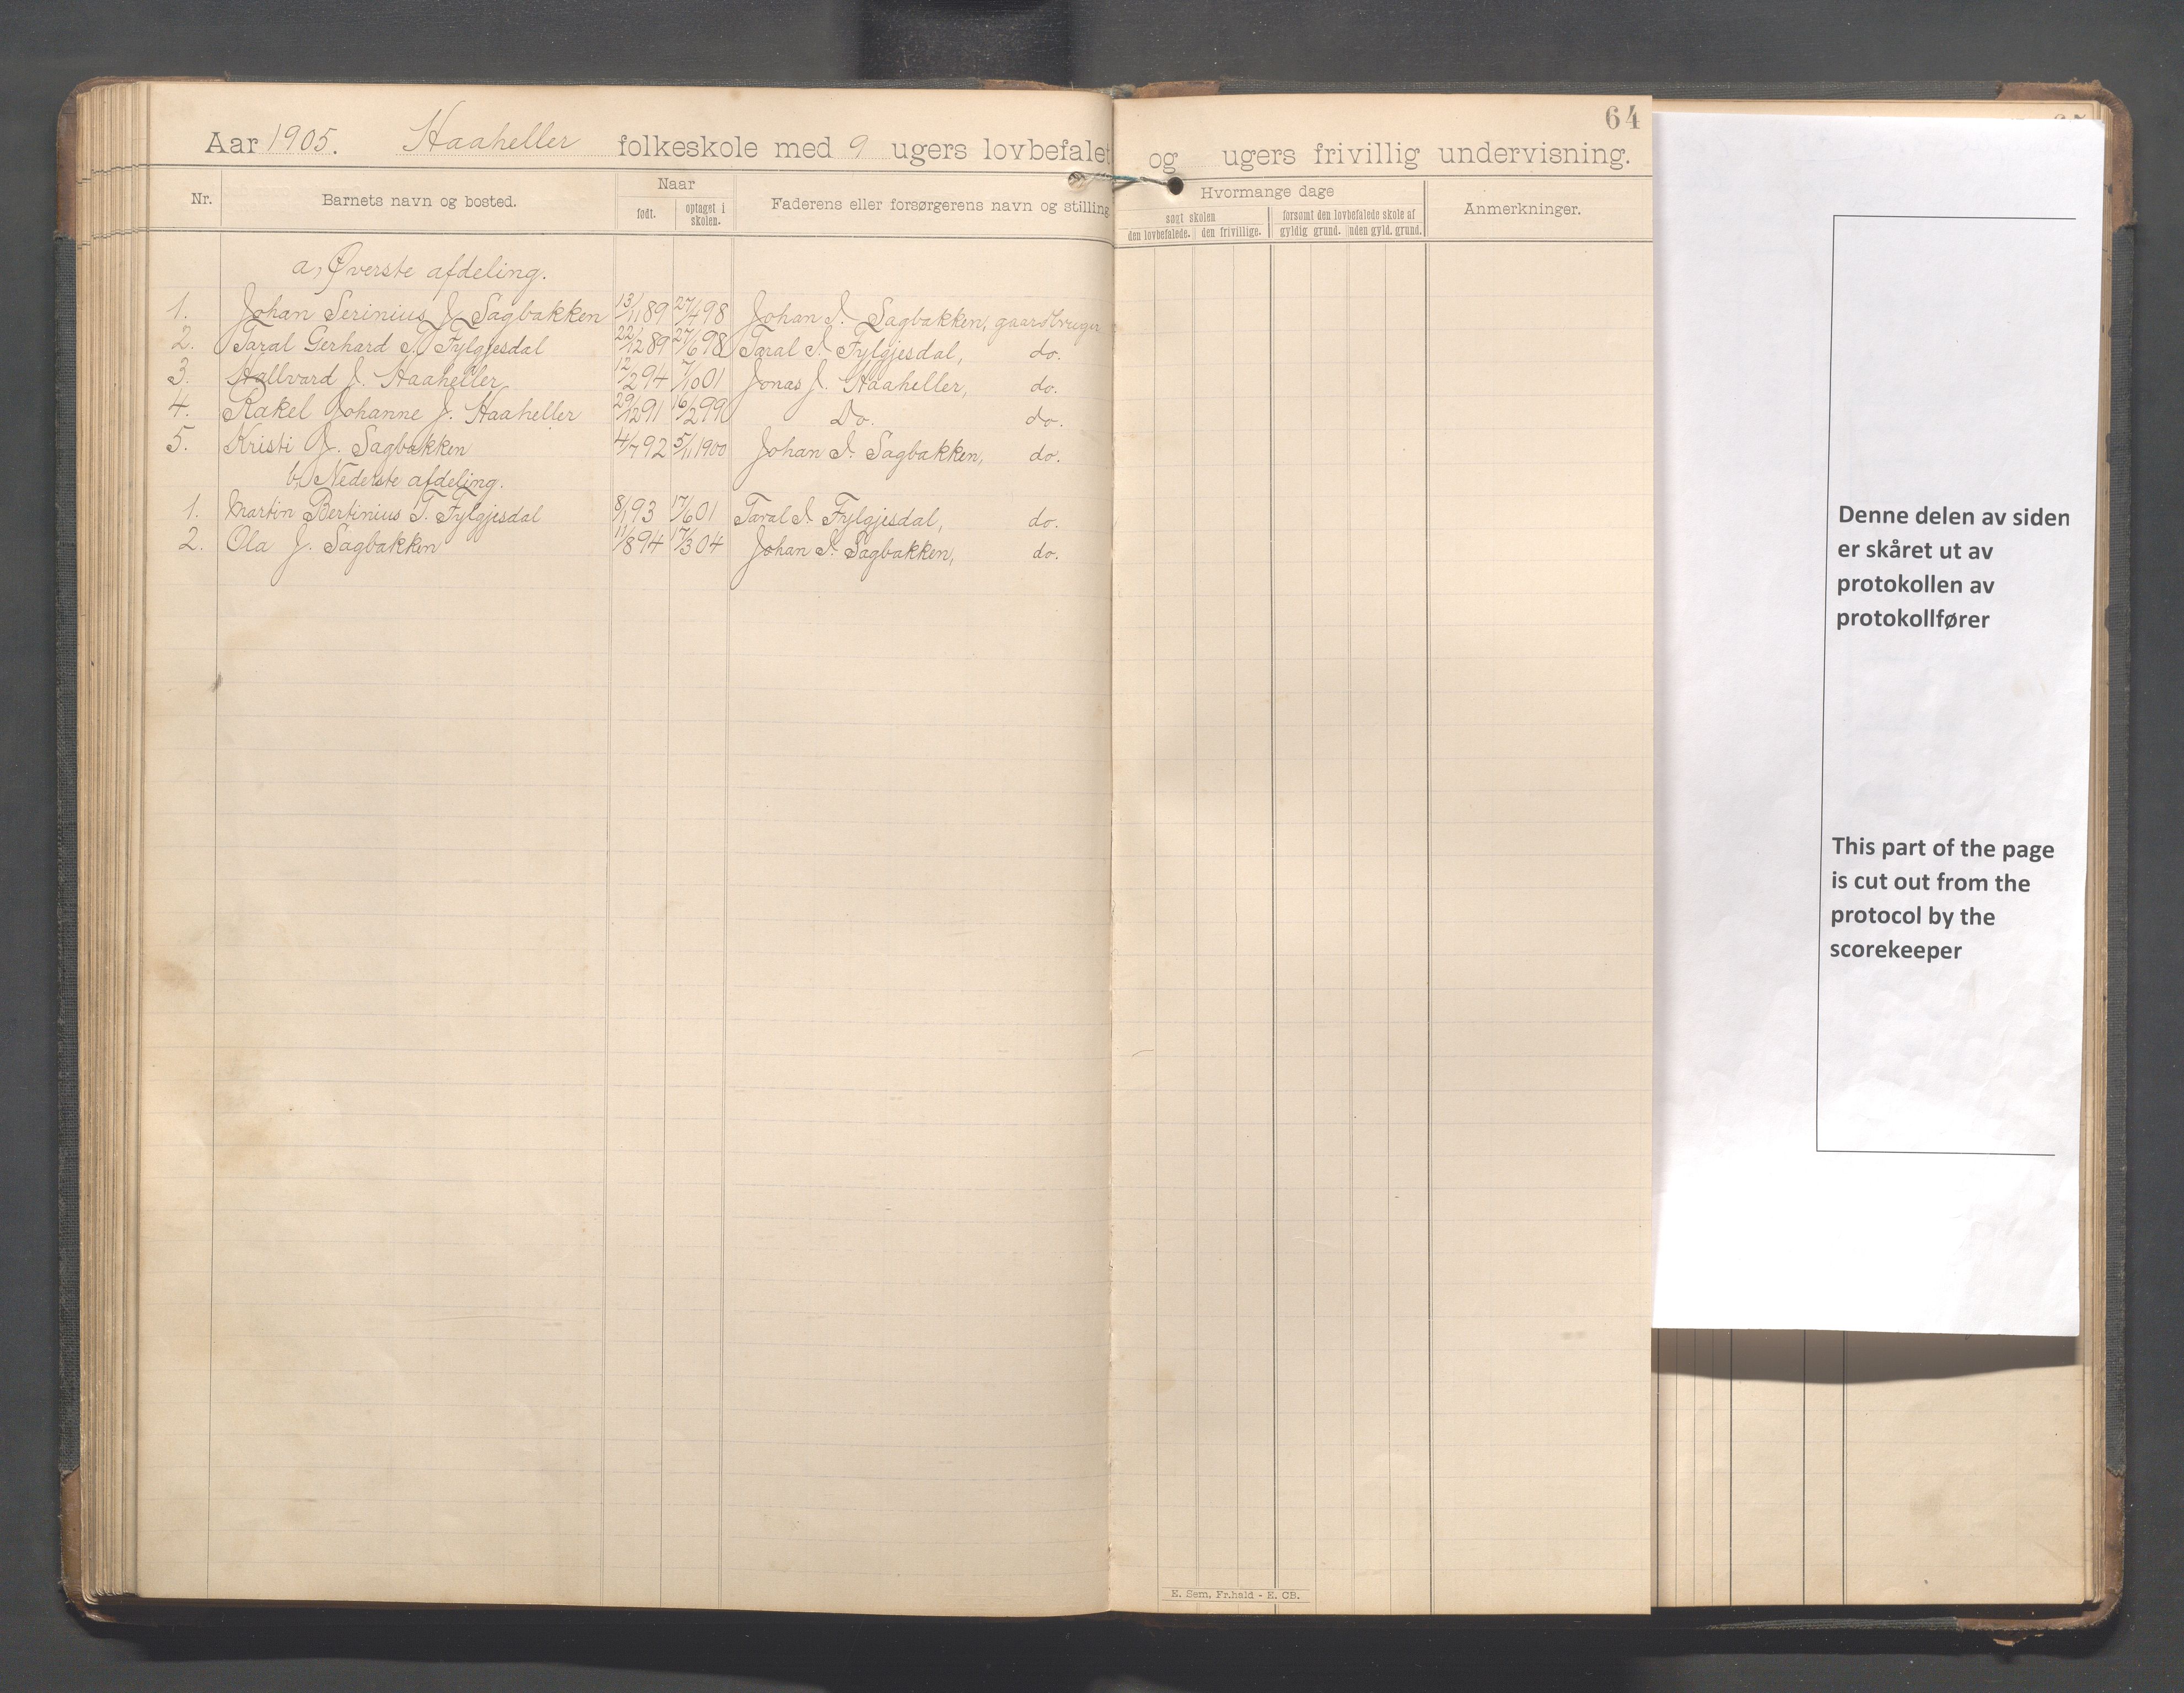 64
Aar 1905. Haaheller folkeskole med 9 ugers lovbefalet og ugers frivillig undervisning.
Nr. Barnets navn og bosted. Naar Faderens eller forsørgerens navn og stilling Hvormange dage Anmerkninger.
født. optaget i skolen. søgt skolen forsømt den lovbefalede skole af
den lovbefalede. den frivillige. gyldig grund. uden gyld. grund.
a, Øverste afdeling.
1. Johan Serinius J. Sagbakken 13/11 89 27/4 98 Johan I. Sagbakken, gaardbruger
2. Taral Gerhard T. Fylgjesdal 22/12 89 27/6 98 Taral I. Fylgjesdal, do.
3. Hallvard J. Haaheller 12/2 94 7/10 01 Jonas J. Haaheller, do.
4. Rakel Johanne J. Haaheller 29/12 91 16/2 99 Do. do.
5. Kristi J. Sagbakken 4/7 92 5/11 1900 Johan I. Sagbakken, do.
b, Nederste afdeling.
1. Martin Bertinius T. Fylgjesdal 8/1 93 17/6 01 Taral I. Fylgjesdal, do.
2. Ola J. Sagbakken 11/8 94 17/3 04 Johan I. Sagbakken, do.
E. Sem, Fr.hald - E. CB.
Denne delen av siden
er skåret ut av
protokollen av
protokollfører
This part of the page
is cut out from the
protocol by the
scorekeeper